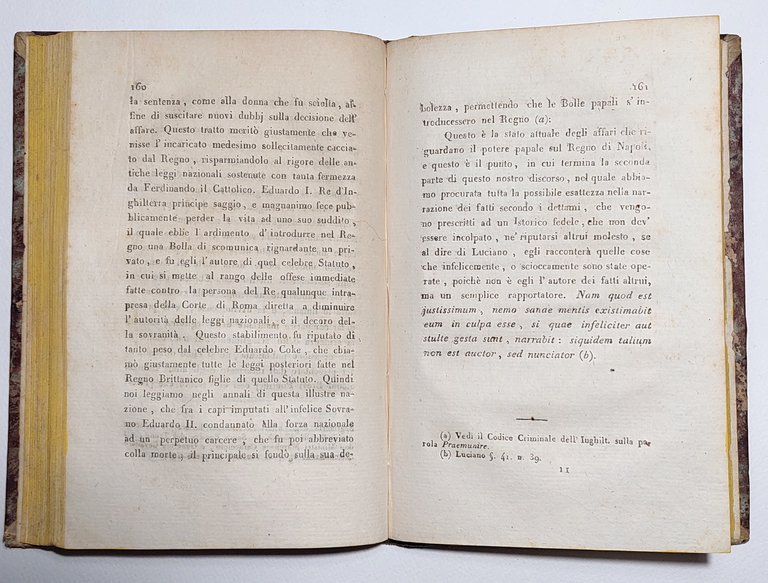 160
la sentenza, come alla donna che fu sciolta, af-
fine di suscitare nuovi dubbj sulla decisione dell'
affare. Questo tratto meritò giustamente che ve-
nisse l'incaricato medesimo sollecitamente caccia-
to dal Regno, risparmiandolo al rigore delle an-
tiche leggi nazionali sostenute con tanta fermezza
da Ferdinando il Cattolico. Eduardo I. Re d'In-
ghilterra principe saggio, e magnanimo fece pub-
blicamente perder la vita ad uno suo suddito,
il quale ebbe l'ardimento d'introdurre nel Re-
gno una Bolla di scomunica riguardante un pri-
vato, e fu egli l'autore di quel celebre Statuto,
in cui si mette al rango delle offese immediate
fatte contro la persona del Re qualunque intra-
presa della Corte di Roma diretta a diminuire
l'autorità delle leggi nazionali, e il decoro del-
la sovranità. Questo stabilimento fu riputato di
tanto peso dal celebre Eduardo Coke, che chia-
mò giustamente tutte le leggi posteriori fatte nel
Regno Brittanico figlie di quello Statuto. Quindi
noi leggiamo negli annali di questa illustre na-
zione, che fra i capi imputati all'infelice Sovra-
no Eduardo II. condannato alla forza nazionale
ad un perpetuo carcere, che fu poi abbreviato
colla morte, il principale si fondò sulla sua de-
161
bolezza, permettendo che le Bolle papali s'in-
troducessero nel Regno (a):
Questo è la stato attuale degli affari che ri-
guardano il potere papale sul Regno di Napoli,
e questo è il punto, in cui termina la seconda
parte di questo nostro discorso, nel quale abbia-
mo procurata tutta la possibile esattezza nella nar-
razione dei fatti secondo i dettami, che vengo-
no prescritti ad un Istorico fedele, che non dev'
essere incolpato, ne' riputarsi altrui molesto, se
al dire di Luciano, egli racconterà quelle cose
che infelicemente, o scioccamente sono state ope-
rate, poichè non è egli l'autore dei fatti altrui,
ma un semplice rapportatore. Nam quod est
justissimum, nemo sanae mentis existimabit
eum in culpa esse, si quae infeliciter aut
stulte gesta sunt, narrabit: siquidem talium
non est auctor, sed nunciator (b).
(a) Vedi il Codice Criminale dell'Inghilt. sulla pa-
rola Praemunire.
(b) Luciano §. 41. n. 39.
11